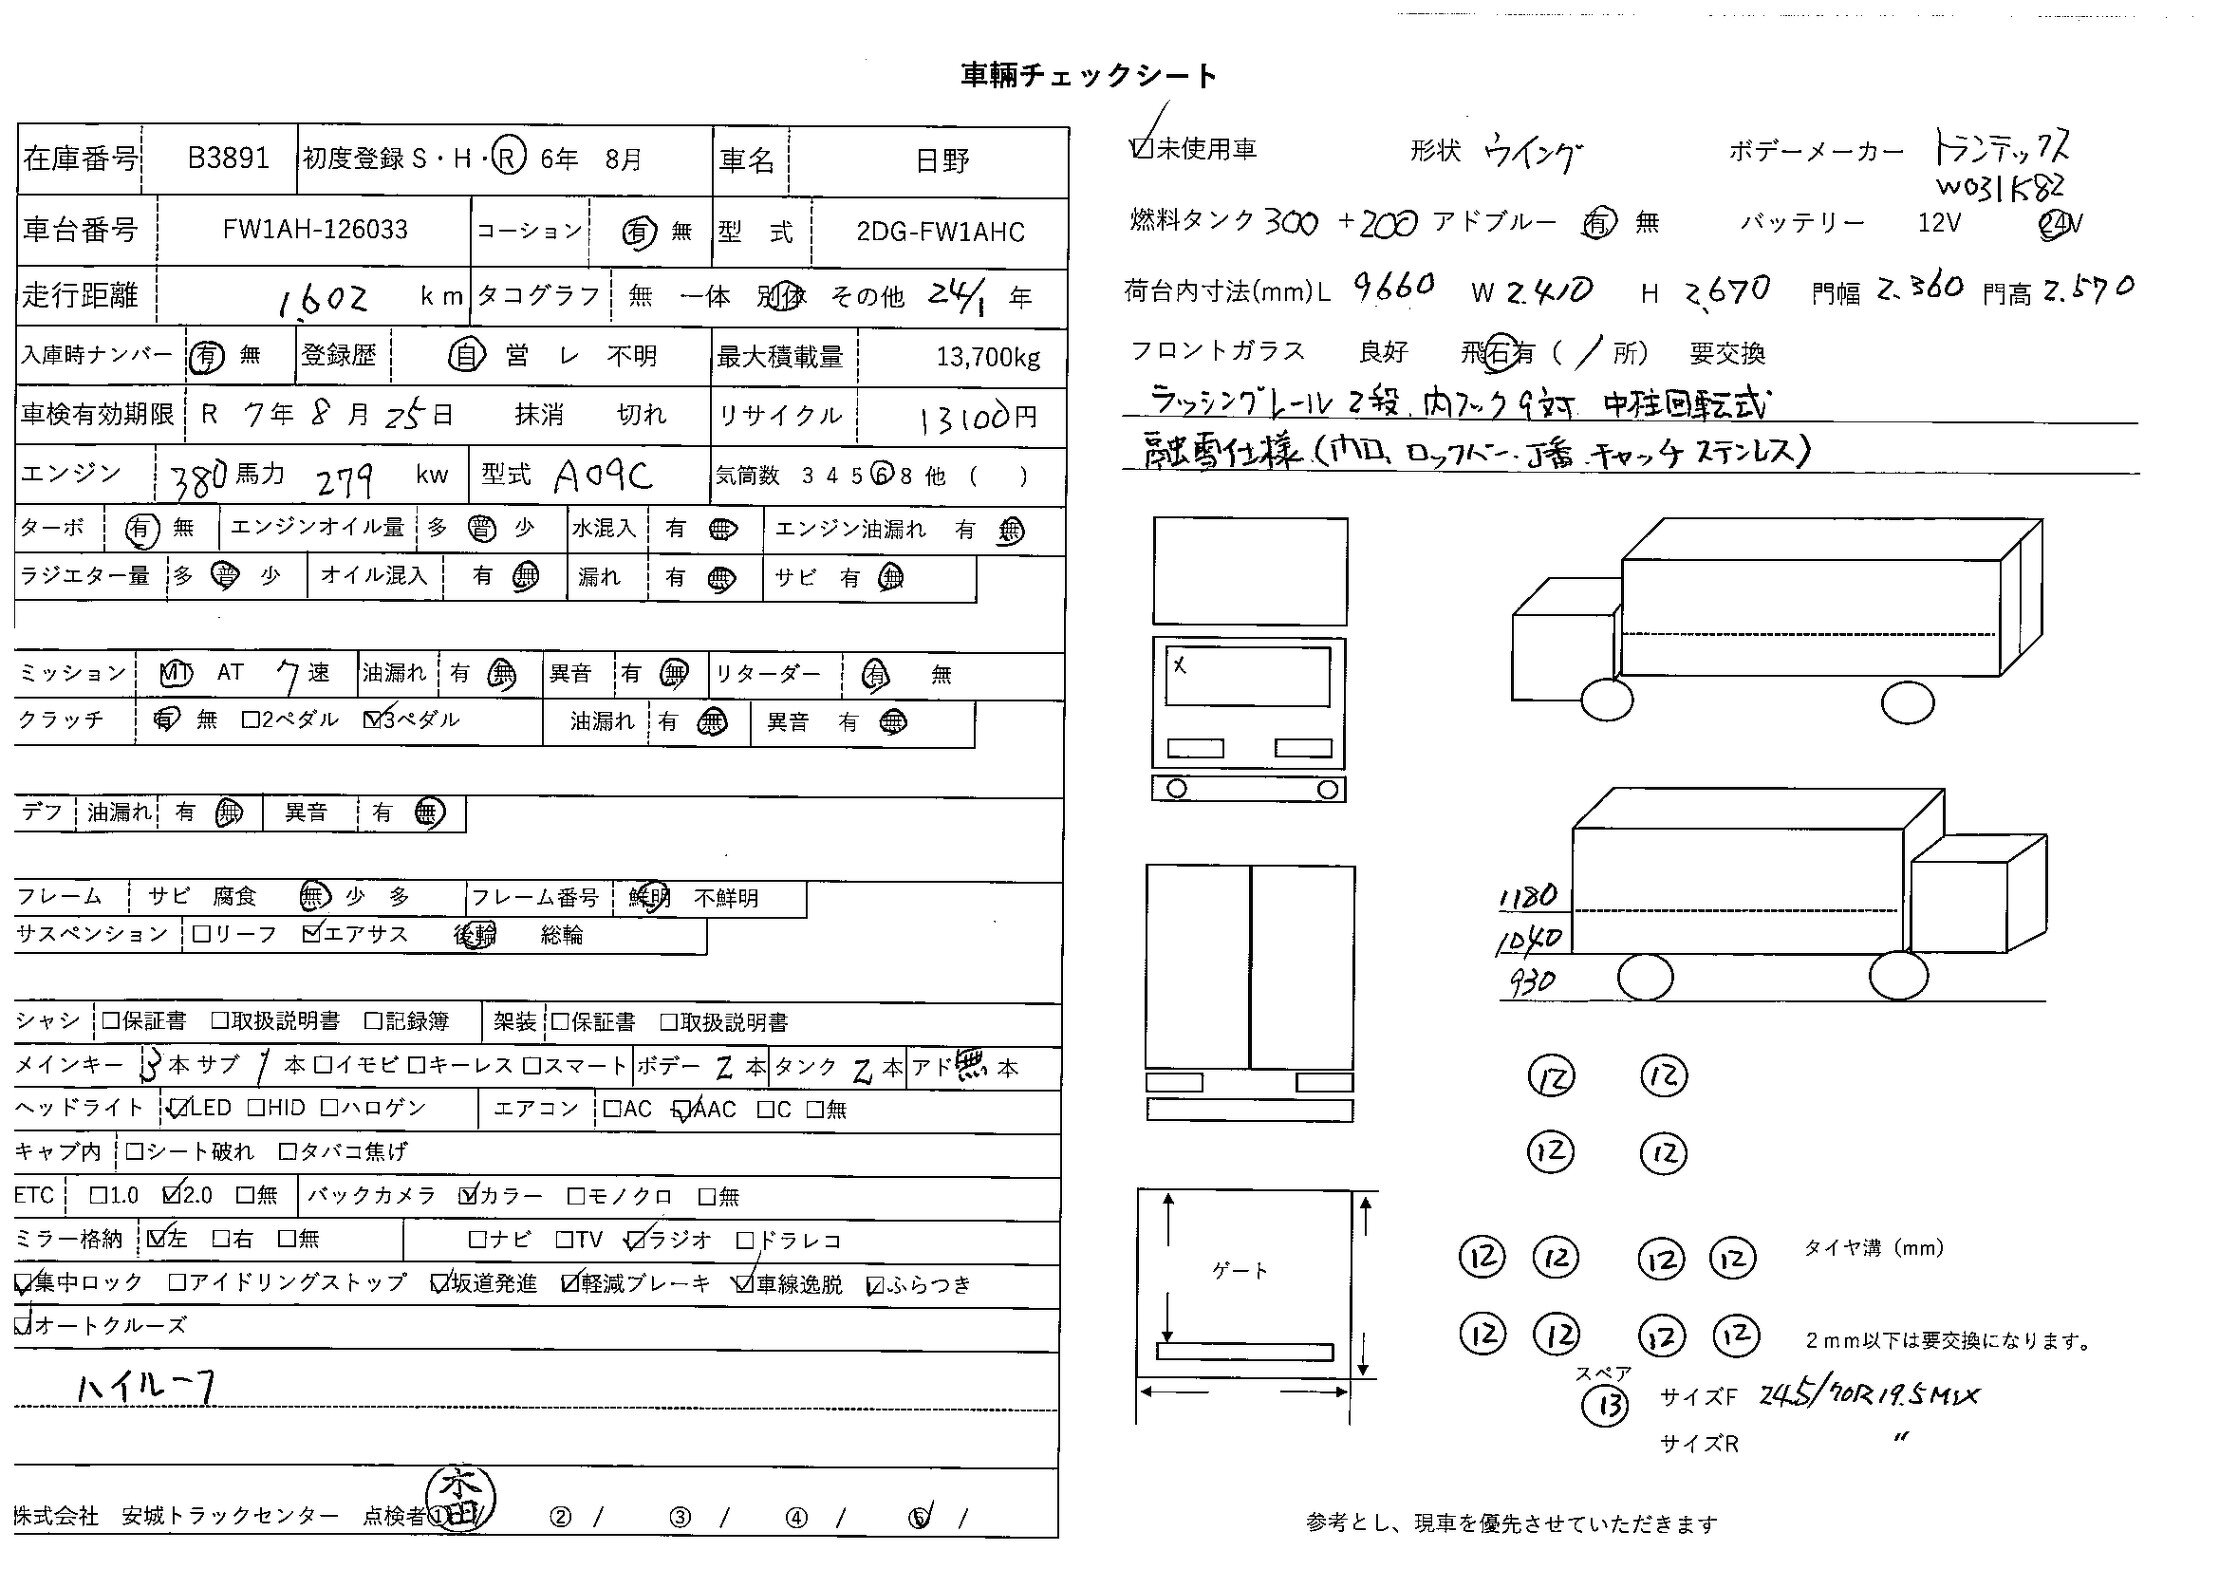 車輛チェックシート
在庫番号 B3891 初度登録 S・H・R 6年 8月 車名 日野
車台番号 FW1AH-126033 コーション 有 無 型 式 2DG-FW1AHC
走行距離 1,602 km タコグラフ 無 一体 別体 その他 24/1 年
入庫時ナンバー 有 無 登録歴 自 営 レ 不明 最大積載量 13,700kg
車検有効期限 R 7年 8月 25日 抹消 切れ リサイクル 13100円
エンジン 380馬力 279 kw 型式 A09C 気筒数 3 4 5 6 8 他 ( )
ターボ 有 無 エンジンオイル量 多 普 少 水混入 有 無 エンジン油漏れ 有 無
ラジエター量 多 普 少 オイル混入 有 無 漏れ 有 無 サビ 有 無
ミッション MT AT 7速 油漏れ 有 無 異音 有 無 リターダー 有 無
クラッチ 有 無 □2ペダル ☑3ペダル 油漏れ 有 無 異音 有 無
デフ 油漏れ 有 無 異音 有 無
フレーム サビ 腐食 無 少 多 フレーム番号 鮮明 不鮮明
サスペンション □リーフ ☑エアサス 後輪 総輪
シャシ □保証書 □取扱説明書 □記録簿 架装 □保証書 □取扱説明書
メインキー 3本 サブ 1本 □イモビ □キーレス □スマート ボデー 2本 タンク 2本 アド 無 本
ヘッドライト ☑LED □HID □ハロゲン エアコン □AC ☑AAC □C □無
キャブ内 □シート破れ □タバコ焦げ
ETC □1.0 ☑2.0 □無 バックカメラ ☑カラー □モノクロ □無
ミラー格納 ☑左 □右 □無 □ナビ □TV ☑ラジオ □ドラレコ
☑集中ロック □アイドリングストップ ☑坂道発進 ☑軽減ブレーキ ☑車線逸脱 ☑ふらつき
☑オートクルーズ
ハイルーフ
株式会社 安城トラックセンター 点検者① / ② / ③ / ④ / ⑤ /
☑未使用車 形状 ウイング ボデーメーカー トランテックス
W031K82
燃料タンク 300 +200 アドブルー 有 無 バッテリー 12V 24V
荷台内寸法(mm)L 9660 W 2.410 H 2,670 門幅 2.360 門高 2.570
フロントガラス 良好 飛石有 ( / 所) 要交換
ラッシングレール2段.内フック9対.中柱回転式
融雪仕様.(門口.ロックバー.丁番.キャッチ ステンレス)
x
1180
1040
930
12 12
12 12
12 12 12 12 タイヤ溝(mm)
12 12 12 12 2mm以下は要交換になります。
ゲート
スペア
13 サイズF 245/70R19.5 MIX
サイズR 〃
参考とし、現車を優先させていただきます